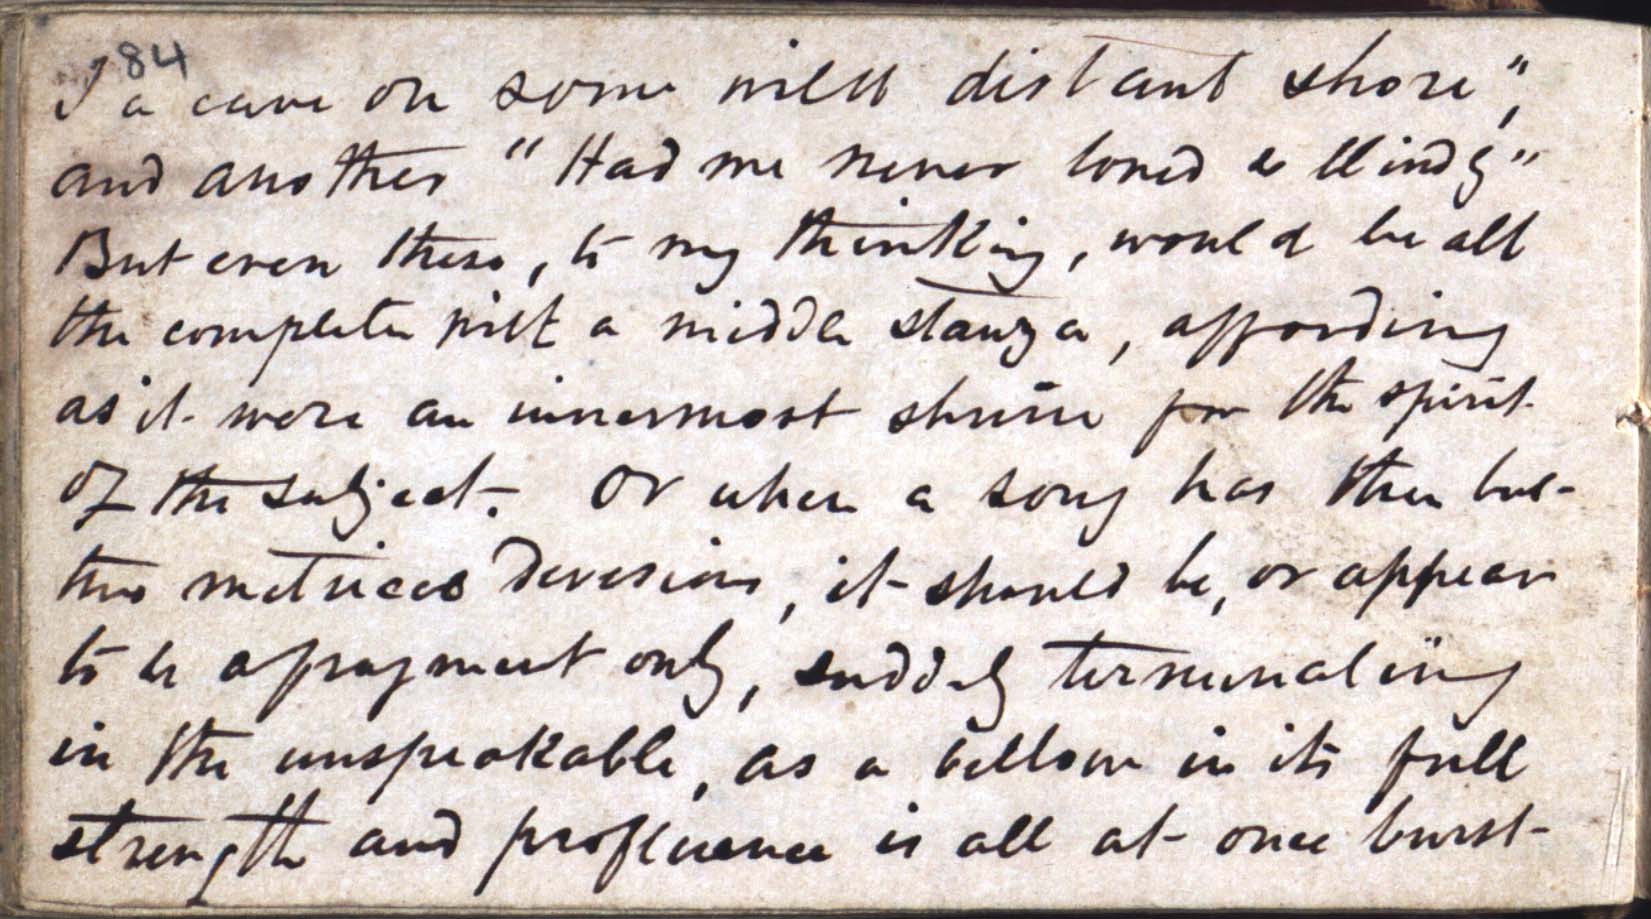 84
I a cave on some wild distant shore",
and another "Had we never loved so blindly"
But even these, to my thinking, would be all
the completer with a middle stanza, affording
as it were an innermost shrine for the spirit
of the subject. Or when a song has then but
two metrical devisions, it should be, or appear
to be a fragment only, suddenly terminating
in the unspeakable, as a billow in its full
strength and profluence is all at once burst